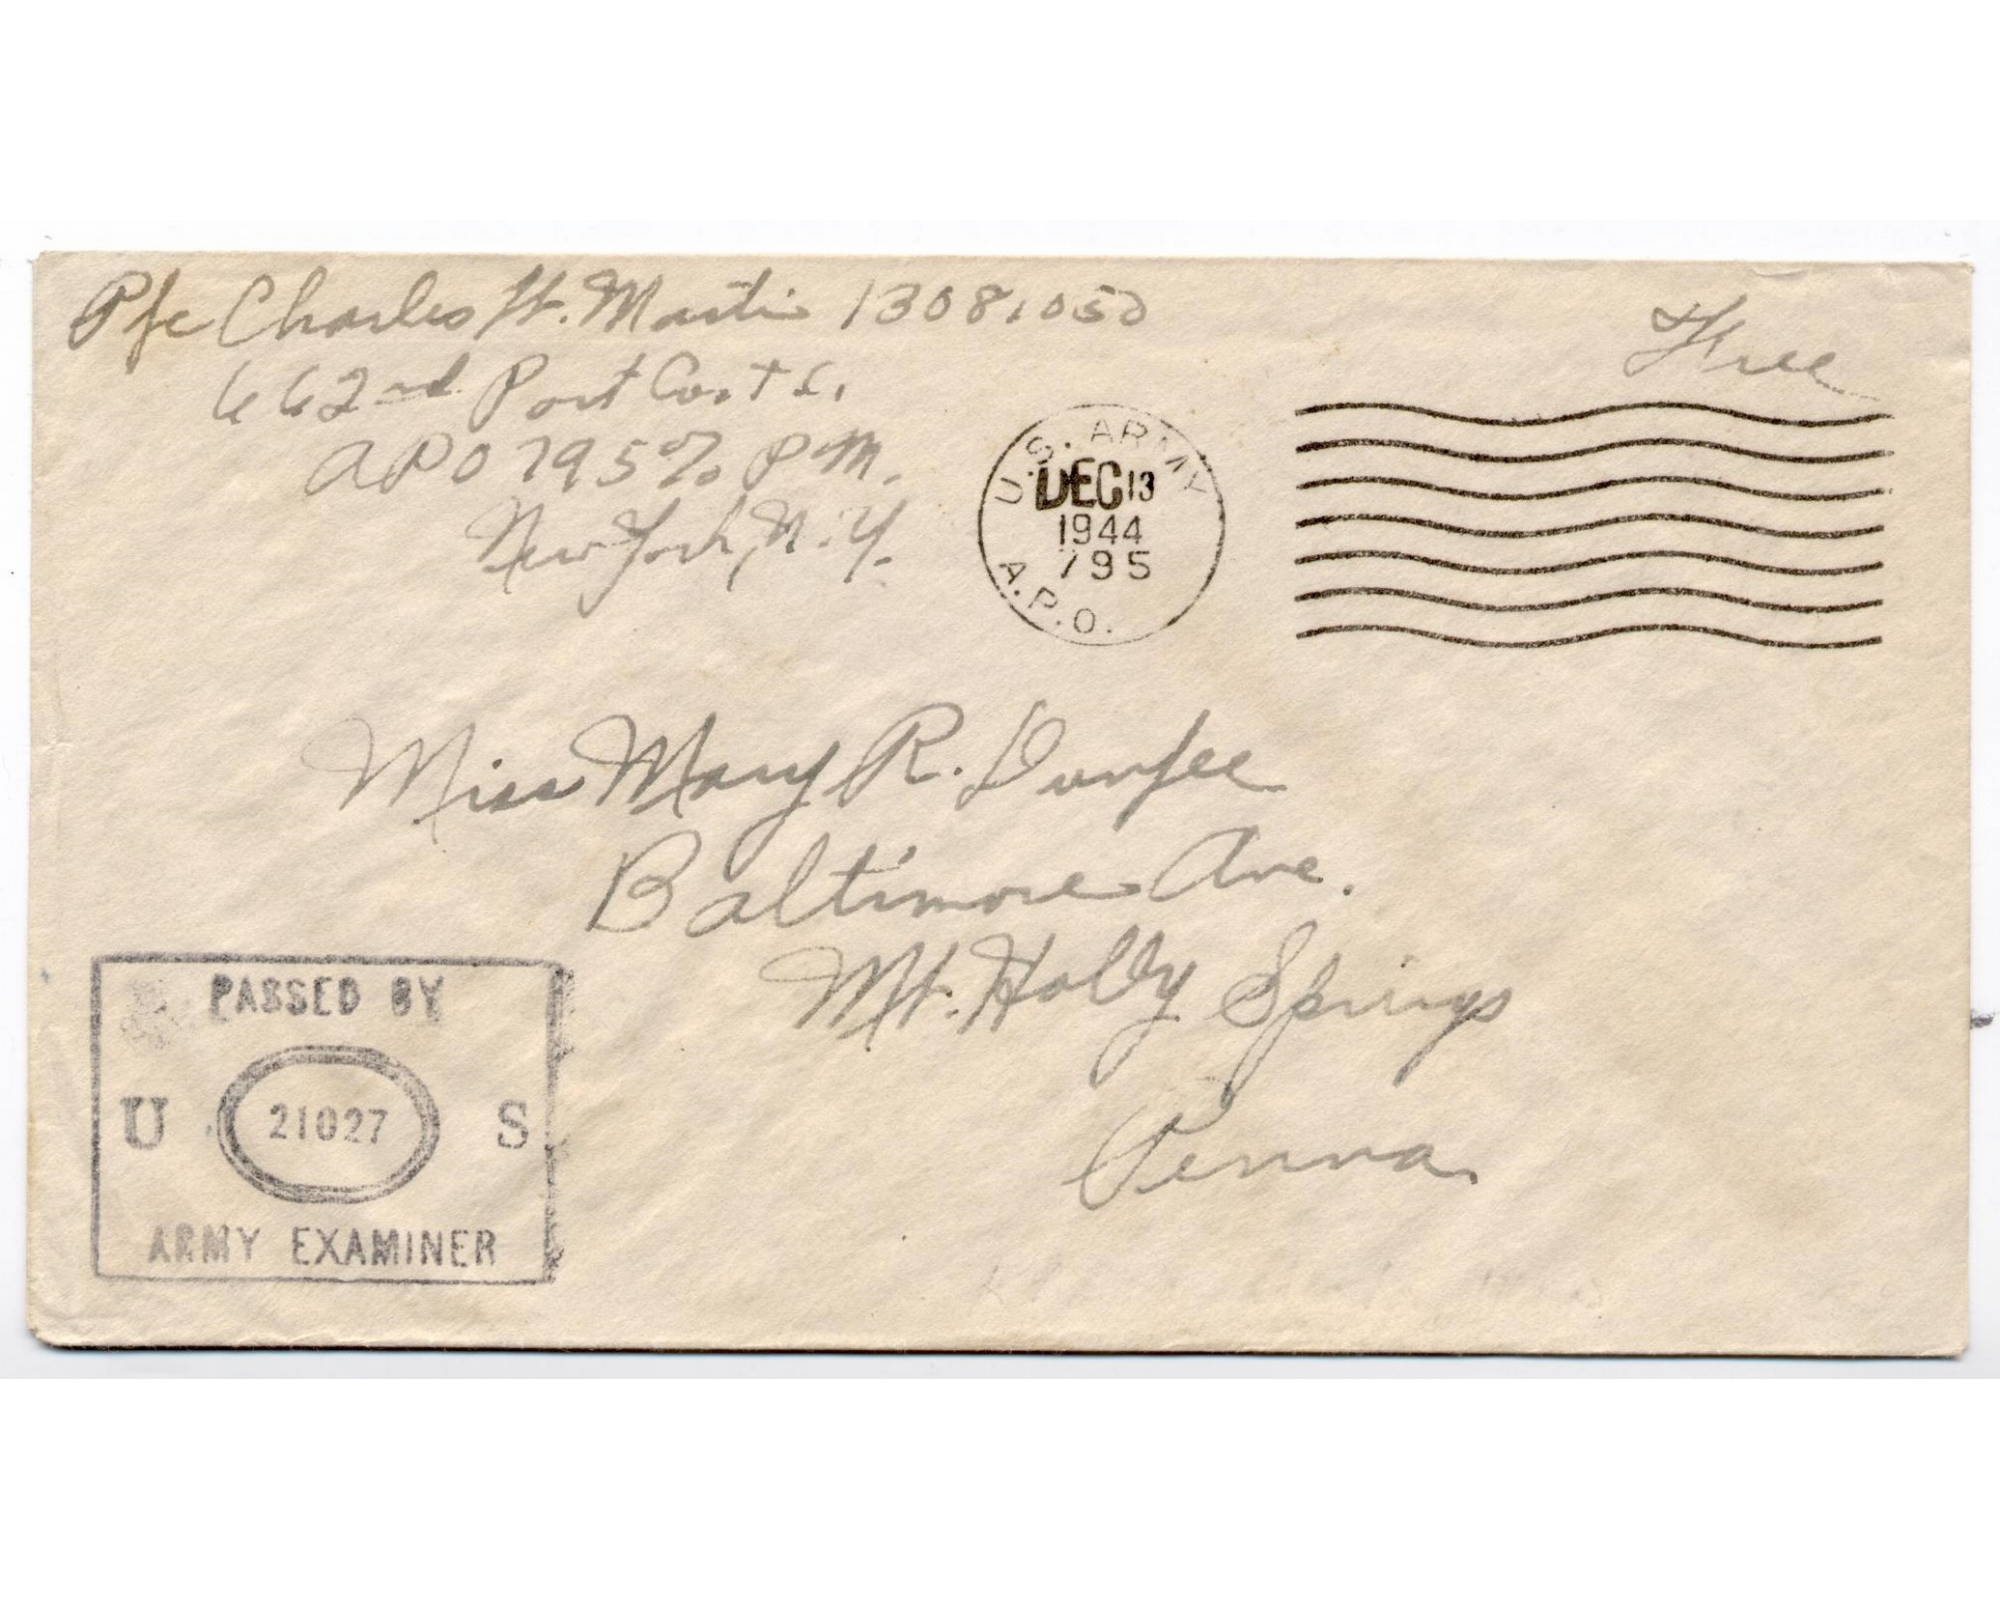 Pfc Charles H. Martin 13081050
662nd Port Co. T C.
APO 795 % P M.
New York, N. Y.
Free
U.S. ARMY
DEC 13
1944
795
A.P.O.
Miss Mary R. Durfee
Baltimore Ave.
Mt. Holly Springs
Penna.
PASSED BY
U 21027 S
ARMY EXAMINER